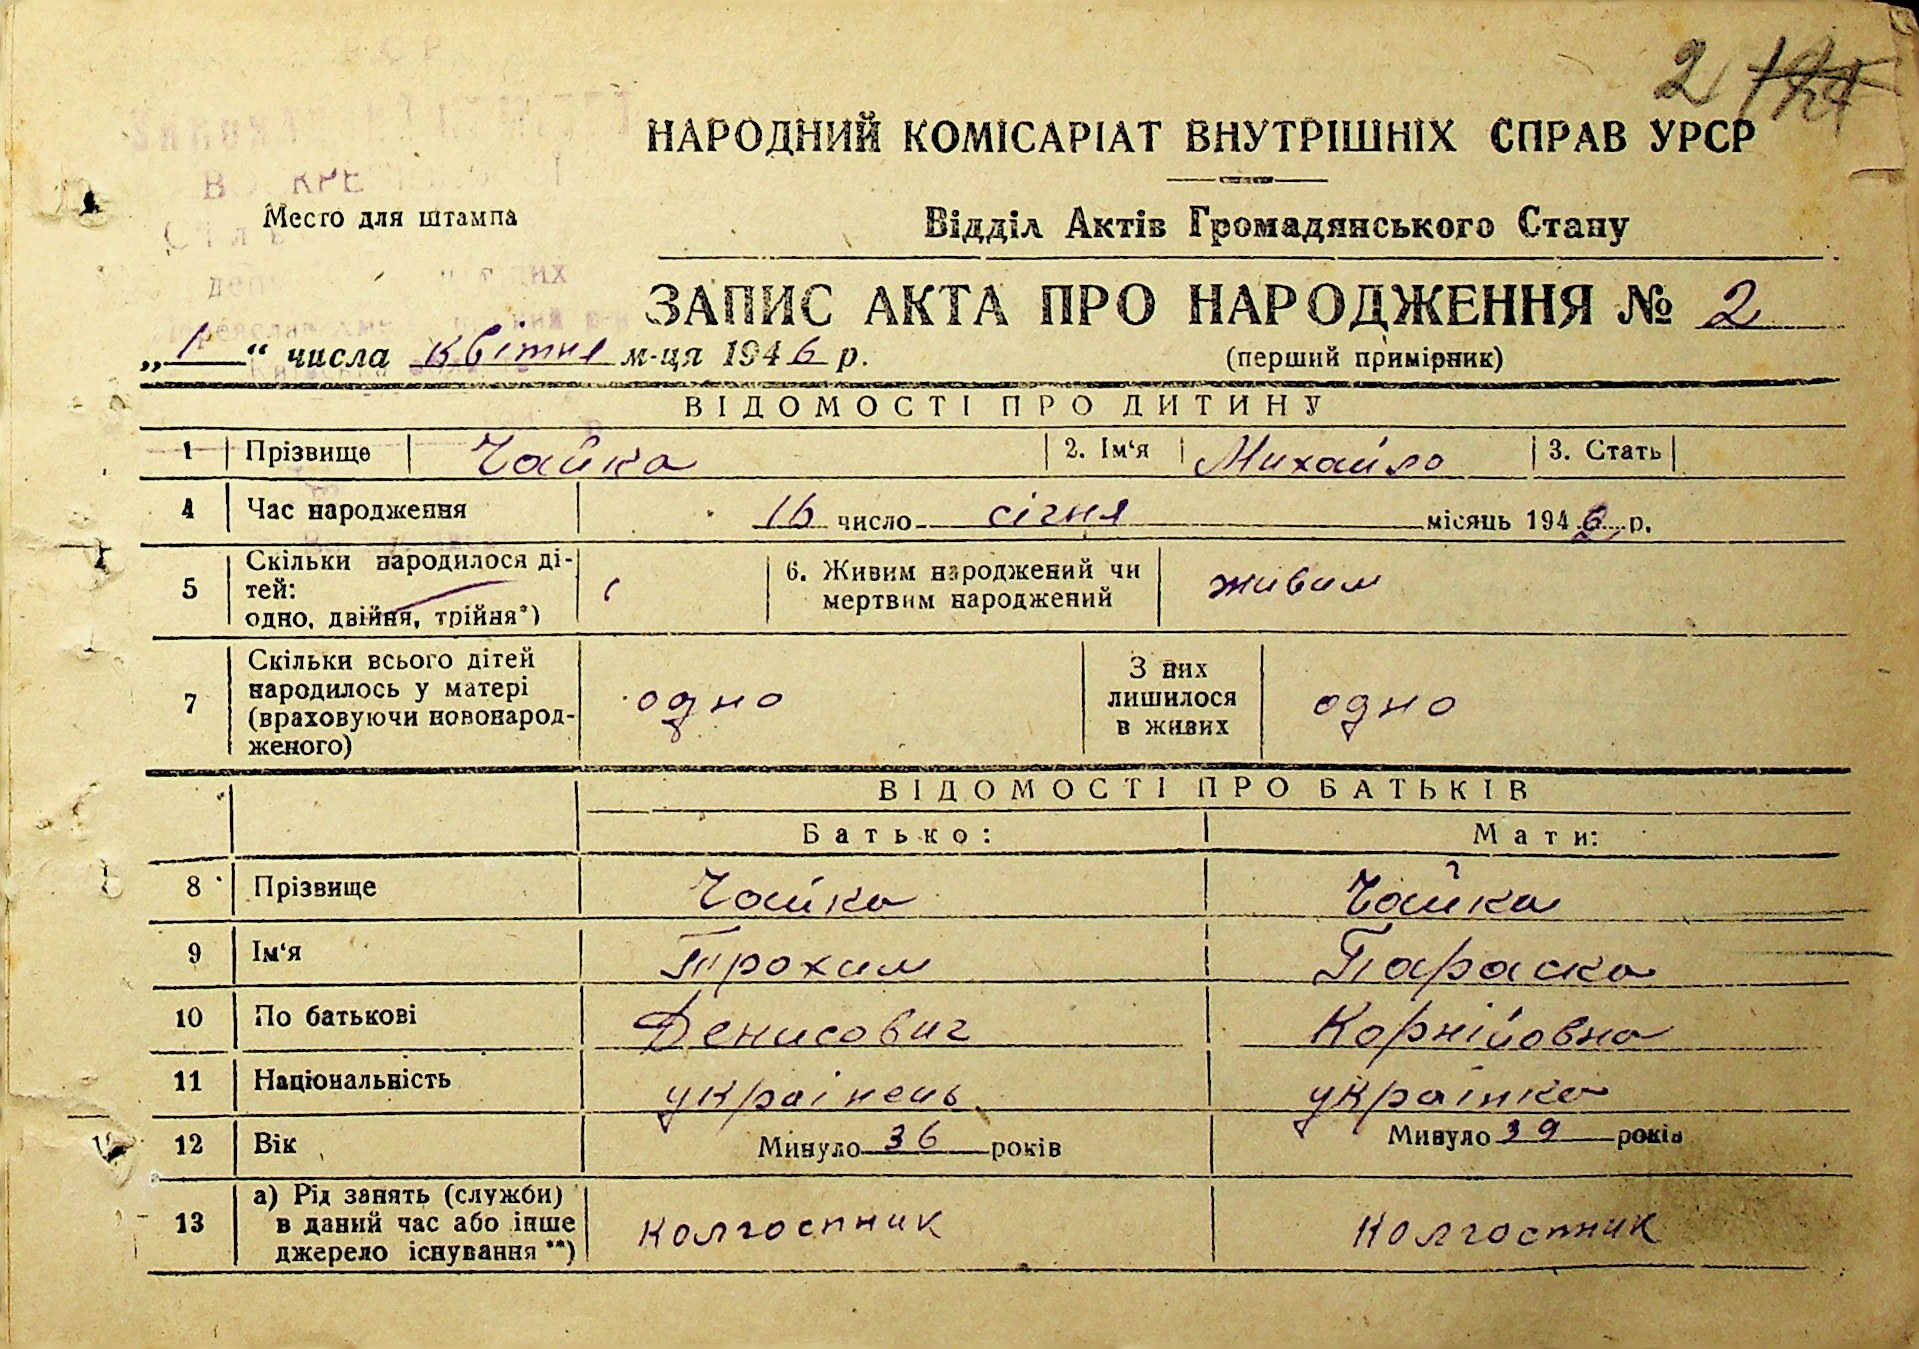 2
НАРОДНИЙ КОМІСАРІАТ ВНУТРІШНІХ СПРАВ УРСР
Место для штампа
Відділ Актів Громадянського Стану
ЗАПИС АКТА ПРО НАРОДЖЕННЯ № 2
„1“ числа квітня м-ця 1946 р.
(перший примірник)
ВІДОМОСТІ ПРО ДИТИНУ
1 Прізвище Чайка 2. Ім‘я Михайло 3. Стать
4 Час народження 16 число січня місяць 1946 р.
5 Скільки народилося ді-
тей:
одно, двійня, трійня*)
6. Живим народжений чи
мертвим народжений
живим
7 Скільки всього дітей
народилось у матері
(враховуючи новонарод-
женого)
одно
З них
лишилося
в живих
одно
ВІДОМОСТІ ПРО БАТЬКІВ
Батько: Мати:
8 Прізвище Чайка Чайка
9 Ім‘я Трохим Параска
10 По батькові Денисович Корнійовна
11 Національність українець українка
12 Вік Минуло 36 років Минуло 39 років
13 а) Рід занять (служби)
в даний час або інше
джерело існування **)
колгоспник колгоспник